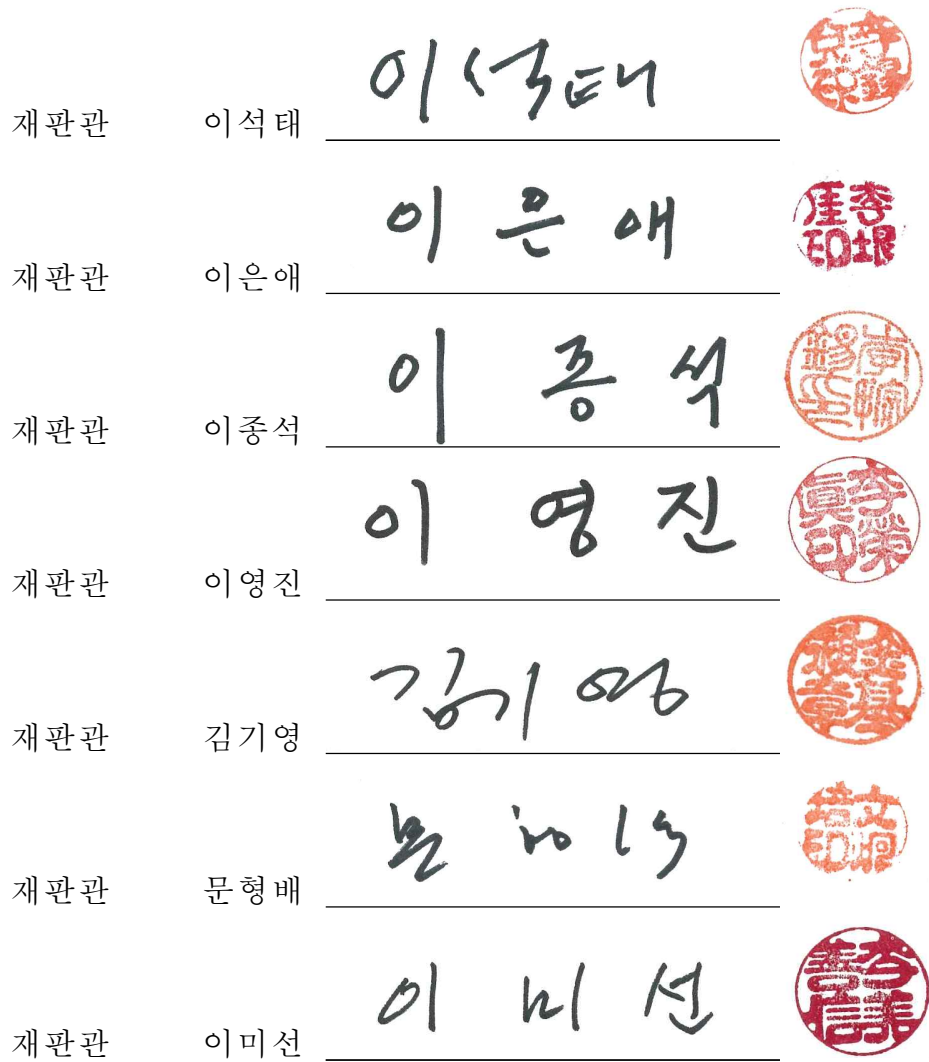 재판관 이석태 이석태
재판관 이은애 이은애
재판관 이종석 이종석
재판관 이영진 이영진 李榮眞印
재판관 김기영 김기영
재판관 문형배
재판관 이미선 이미선